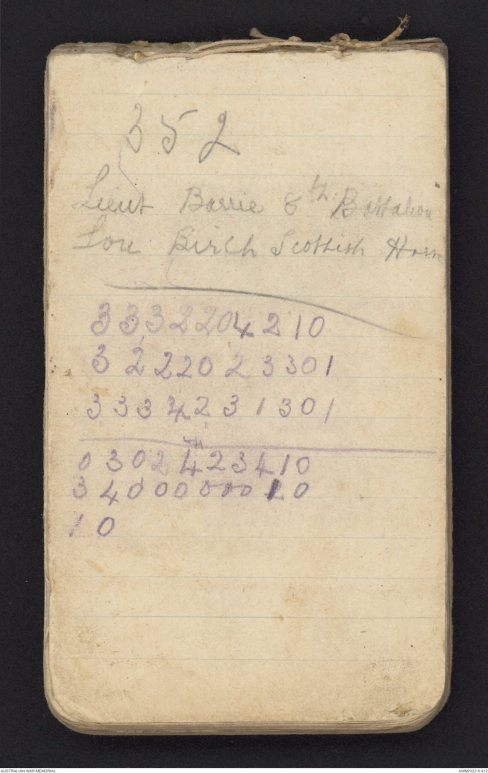 352
Lieut Barrie 8th Battalion
Lou Birch Scottish Horse
3332204210
3 2220 23301
3334231301
0302423410
34000000010
10
AUSTRALIAN WAR MEMORIAL